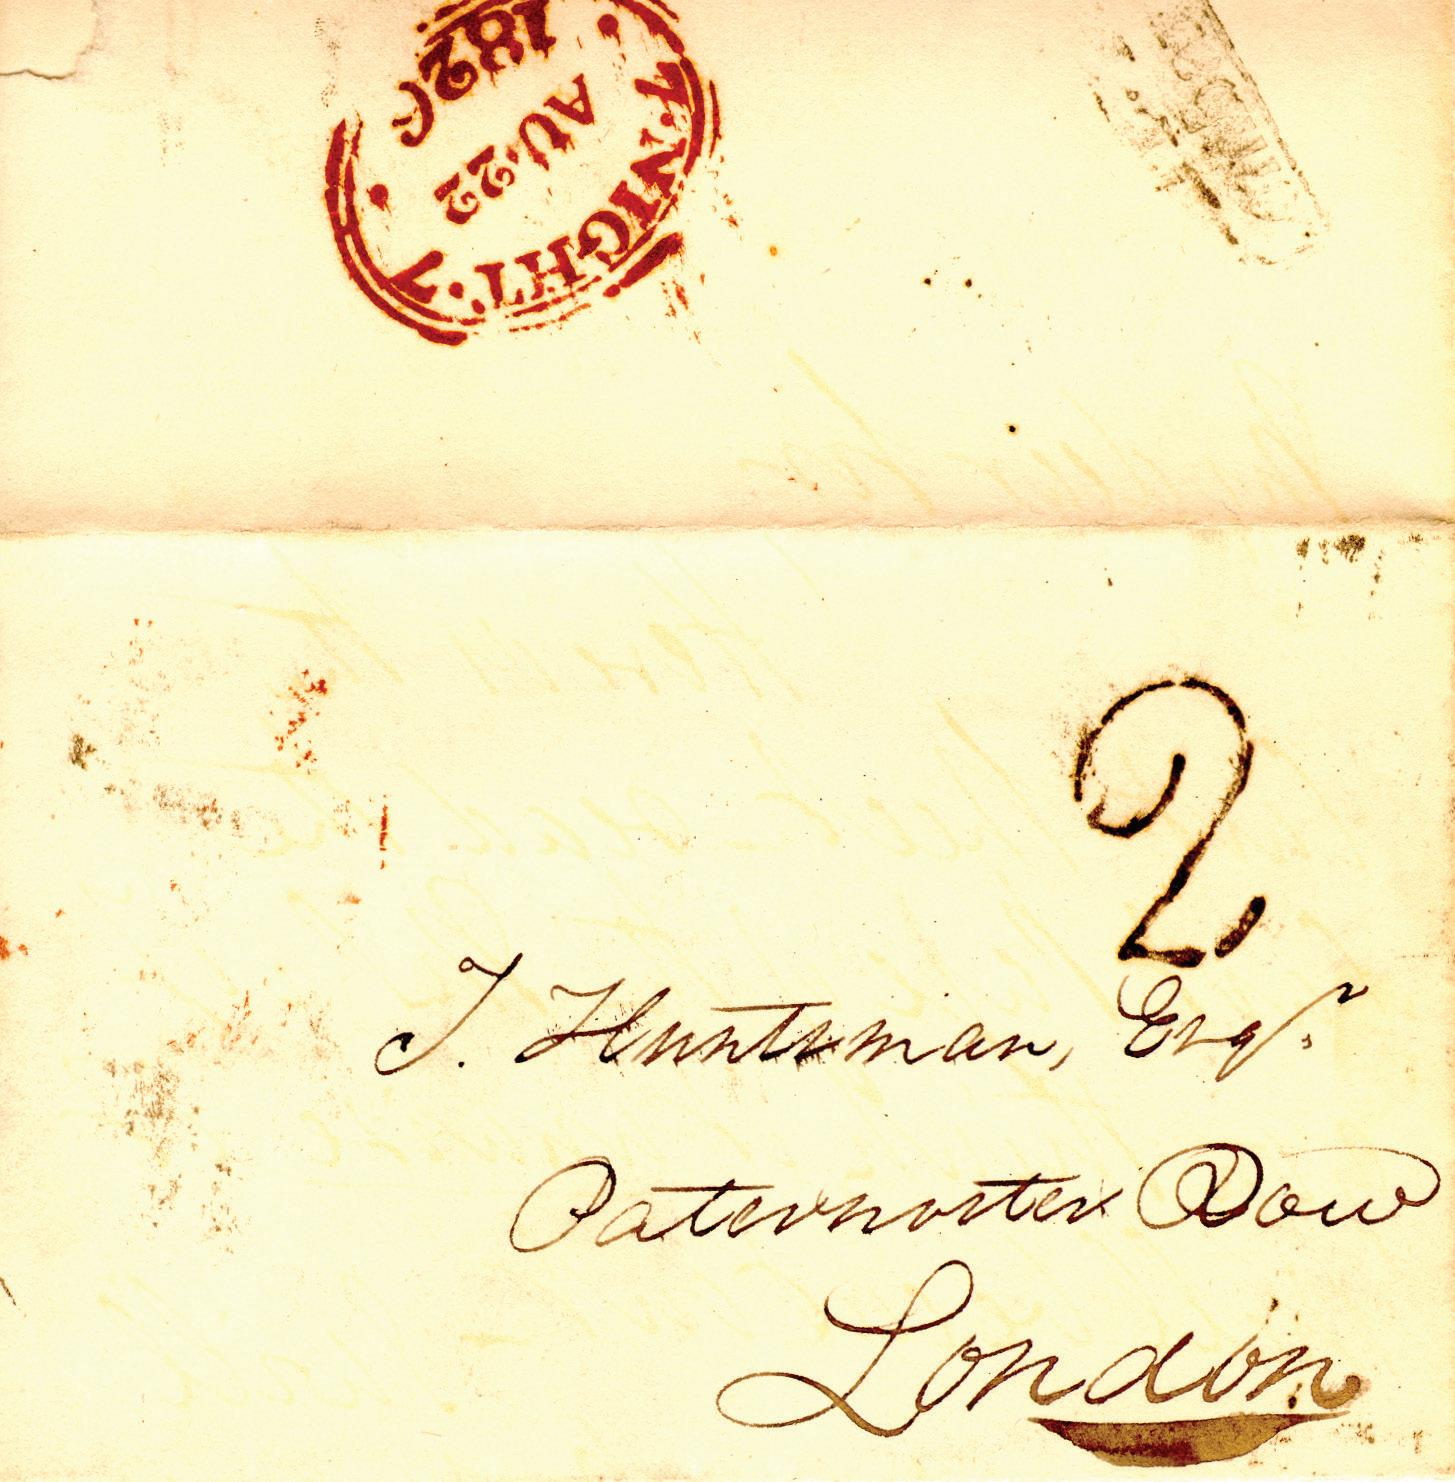 7.NIGHT.7
AU.22
1826
2
J. Huntsman, Esqr.
Paternoster Row
London